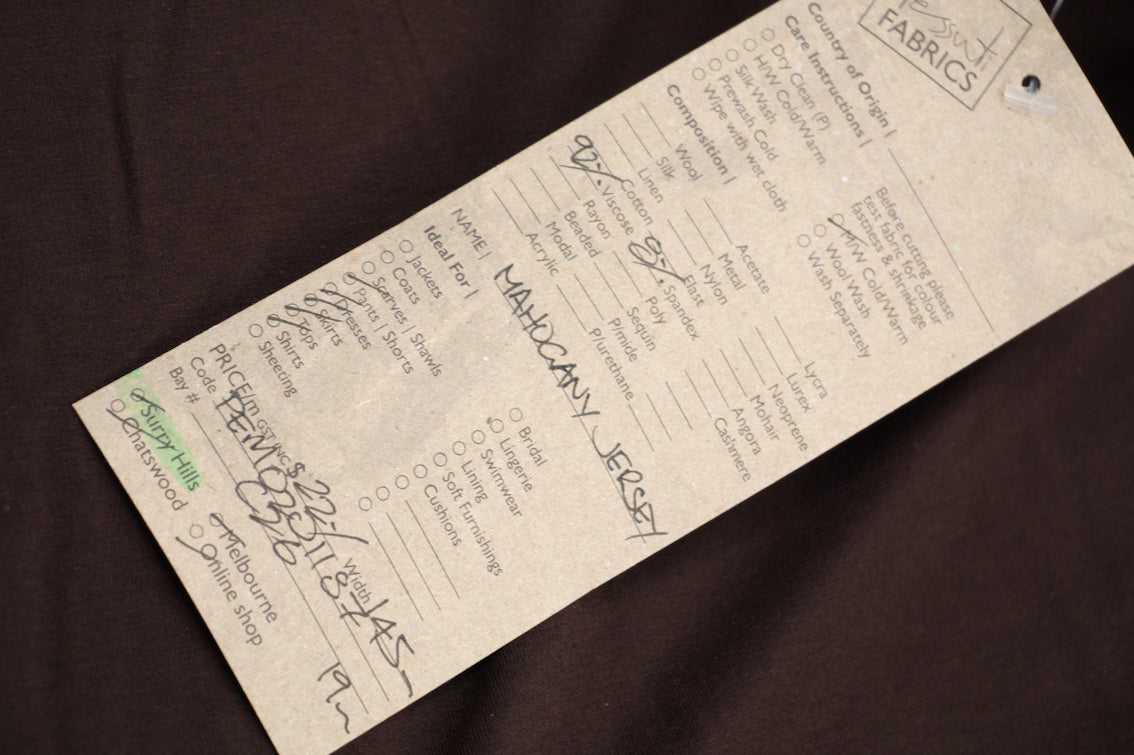 Tessuti
FABRICS
Country of Origin |
Care Instructions |
Dry Clean (P)
H/W Cold/Warm
Silk Wash
Prewash Cold
Wipe with wet cloth
Before cutting please
test fabric for colour
fastness & shrinkage
M/W Cold/Warm
Wool Wash
Wash Separately
Composition |
Wool
Silk
Linen
Cotton
92% Viscose
Rayon
Beaded
Modal
Acrylic
Acetate
Metal
Nylon
Elast
8% Spandex
Poly
Sequin
P/mide
P/urethane
Lycra
Lurex
Neoprene
Mohair
Angora
Cashmere
NAME | MAHOGANY JERSEY
Ideal For |
Jackets
Coats
Scarves | Shawls
Pants | Shorts
Dresses
Skirts
Tops
Shirts
Sheeting
Bridal
Lingerie
Swimwear
Lining
Soft Furnishings
Cushions
PRICE/m GST INC $22/ Width 145
Code
Bay #
19m
Surry Hills
Chatswood
Melbourne
Online shop